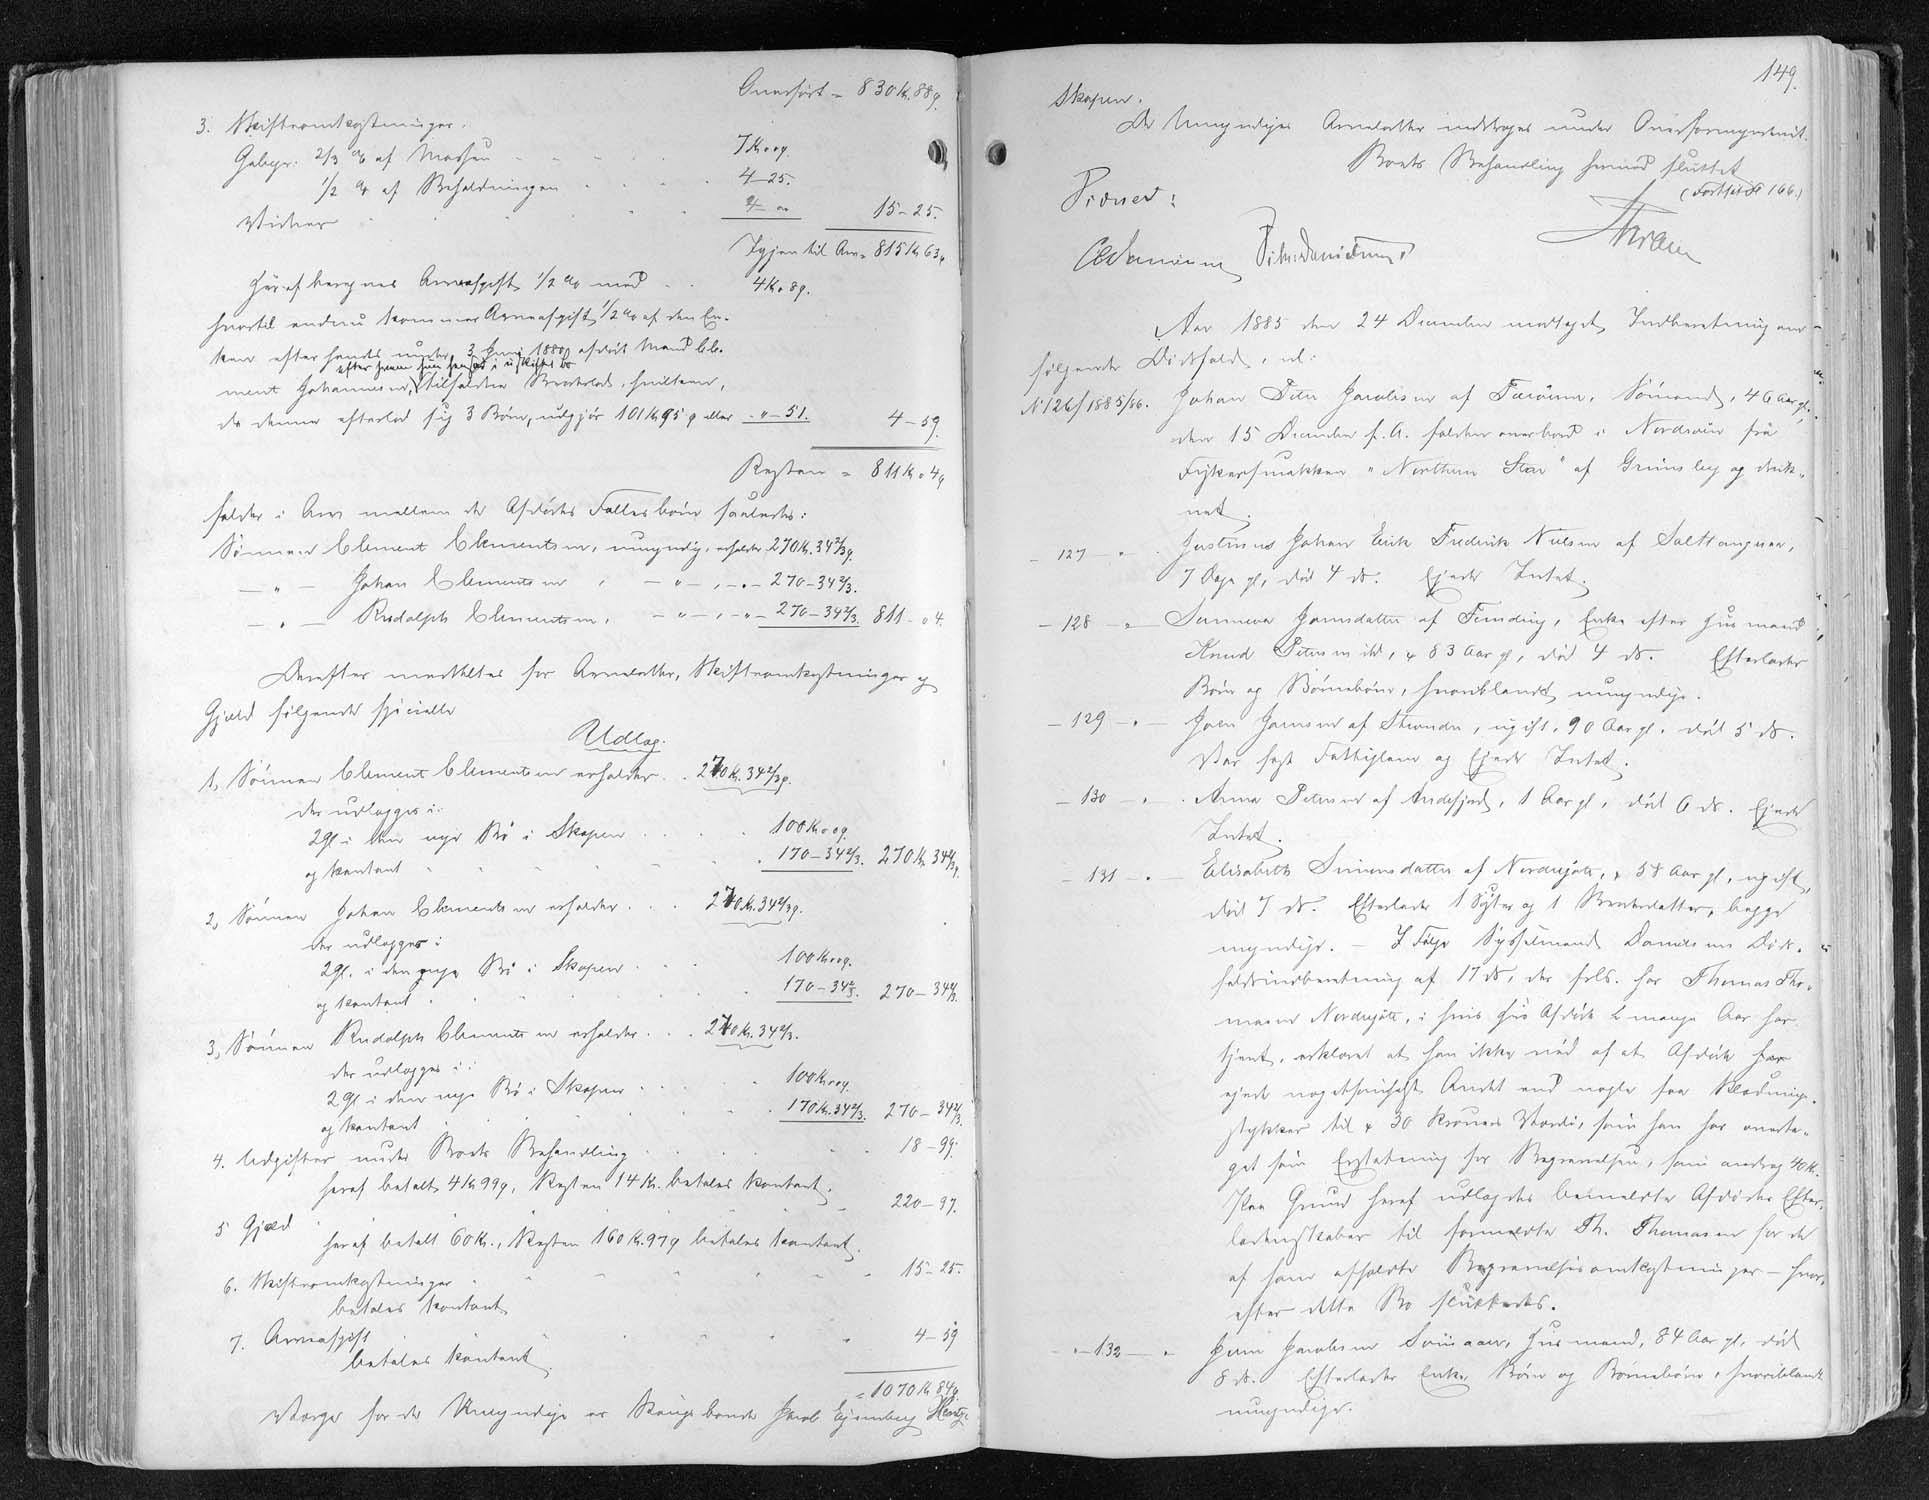 Overført = 830 Kr. 88 ø.
3. Skifteomkostninger.
Gebyr: 2/3 % af Massen . . . 7 Kr. 00 ø.
1/2 % af Beholdningen . . . 4 - 25.
4 - 00 15 - 25.
Igjen til Arv = 815 Kr. 63 ø.
Heraf beregnes Arveafgift 1/2 % med . . 4 Kr. 08 ø.
hvortil endnu kommer Arveafgift 1/2 % af den En-
ken efter hendes under 3 Juni 1880 afdøde Mand Cle-
ment Johannesen, tilfaldne Broderlod, hvilken,
da denne efterlod sig 3 Børn, udgjør 101 Kr. 95 ø eller . " - 51. 4 - 59.
Resten = 811 Kr. 04 ø
falder i Arv mellem de Afdødes Fællesbørn saaledes:
Sønnen Clement Clementsen, umyndig, erholder 270 Kr. 34 2/3 ø.
— " — Johan Clementsen, — " —, — " — 270 - 34 2/3.
— " — Rudolph Clementsen, — " —, — " — 270 - 34 2/3. 811 - 04.
Derefter meddeltes for Arvelodder, Skifteomkostninger og
Gjæld følgende specielle
Udlæg.
1, Sønnen Clement Clementsen erholder . . 270 Kr. 34 2/3 ø.
der udlægges i:
2 gl i den nye Bø i Skopen . . . 100 Kr. 00 ø.
og kontant . . . 170 - 34 2/3. 270 Kr. 34 2/3 ø.
2, Sønnen Johan Clementsen erholder . . . 270 Kr. 34 2/3 ø.
der udlægges i:
2 gl. i den nye Bø i Skopen . . . 100 Kr. 00 ø.
og kontant . . . 170 - 34 2/3. 270 - 34 2/3.
3, Sønnen Rudolph Clementsen erholder . . . 270 Kr. 34 2/3.
der udlægges i:
2 gl i den nye Bø i Skopen . . . 100 Kr. 00 ø.
og kontant . . . 170 Kr. 34 2/3. 270 - 34 2/3.
4. Udgifter under Boets Behandling . . . 18 - 99.
heraf betalt 4 Kr 99 ø, Resten 14 Kr. betales kontant.
5 Gjæld . . . 220 - 97.
heraf betalt 60 Kr., Resten 160 Kr. 97 ø betales kontant.
6. Skifteomkostninger . . . 15 - 25.
betales kontant
7. Arveafgift . . . 4 - 59
betales kontant.
= 1070 Kr 84 ø.
Værge for de Umyndige er Kongsbonde Jacob
149.
Skopen.
De Umyndiges Arvelodder inddrages under Overformynderiet.
Boets Behandling hermed sluttet
(Fortsat Fol 166.)
Vidner:
Aar 1885 den 24 December modtoges Indberetning om
følgende Dødsfald, nl:
N 126/1885/86. Johan Peter Jacobsen af Færøerne, Sømand, 46 Aar gl.,
den 15 December f. A. falden overbord i Nordsøen fra
Fiskersmakken "Northern Star" af Grimsby og druk-
net.
— 127 — " — Justinus Johan Erik Frederik Nielsen af Saltangará,
7 Dage gl., død 4 ds. Ejede Intet.
— 128 — " — Sunneva Joensdatter af Funding, Enke efter Husmand
Knud Petersen ibd., 83 Aar gl., død 4 ds. Efterlader
Børn og Børnebørn, hvoriblandt umyndige.
— 129 — " — Joen Joensen af Strender, ugift, 90 Aar gl. død 5 ds.
Var sagt Fattiglem og Ejede Intet.
— 130 — " — Anna Petersen af Andefjord, 1 Aar gl., død 6 ds. Ejede
Intet.
— 131 — " — Elisabeth Simonsdatter af Nordregøte, 58 Aar gl., ugift,
død 7 ds. Efterlader 1 Syster og 1 Broderdatter, begge
myndige. — I Følge Sysselmand Danielsens Døds-
faldsindberetning af 17 ds., der fols. har Thomas Tho-
masen Nordregøte, i hvis Hus Afdøde i mange Aar har
tjent, erklæret at han ikke ved af at Afdøde har
ejet nogetsomhelst Andet end nogle faa Klædnings-
stykker til 30 Kroners Værdi, som han har overta-
get som Erstatning for Begravelsen, som androg 40 Kr.
Paa Grund heraf udlagdes bemeldte Afdødes Efter-
ladenskaber til formeldte Th. Thomasen for de
af ham afholdte Begravelsesomkostninger — hvor-
efter dette Bo sluttedes.
— 132 — " Jens Jacobsen Husmand, 84 Aar gl., død
8 ds. Efterlader Enke, Børn og Børnebørn, hvoriblandt
umyndige.